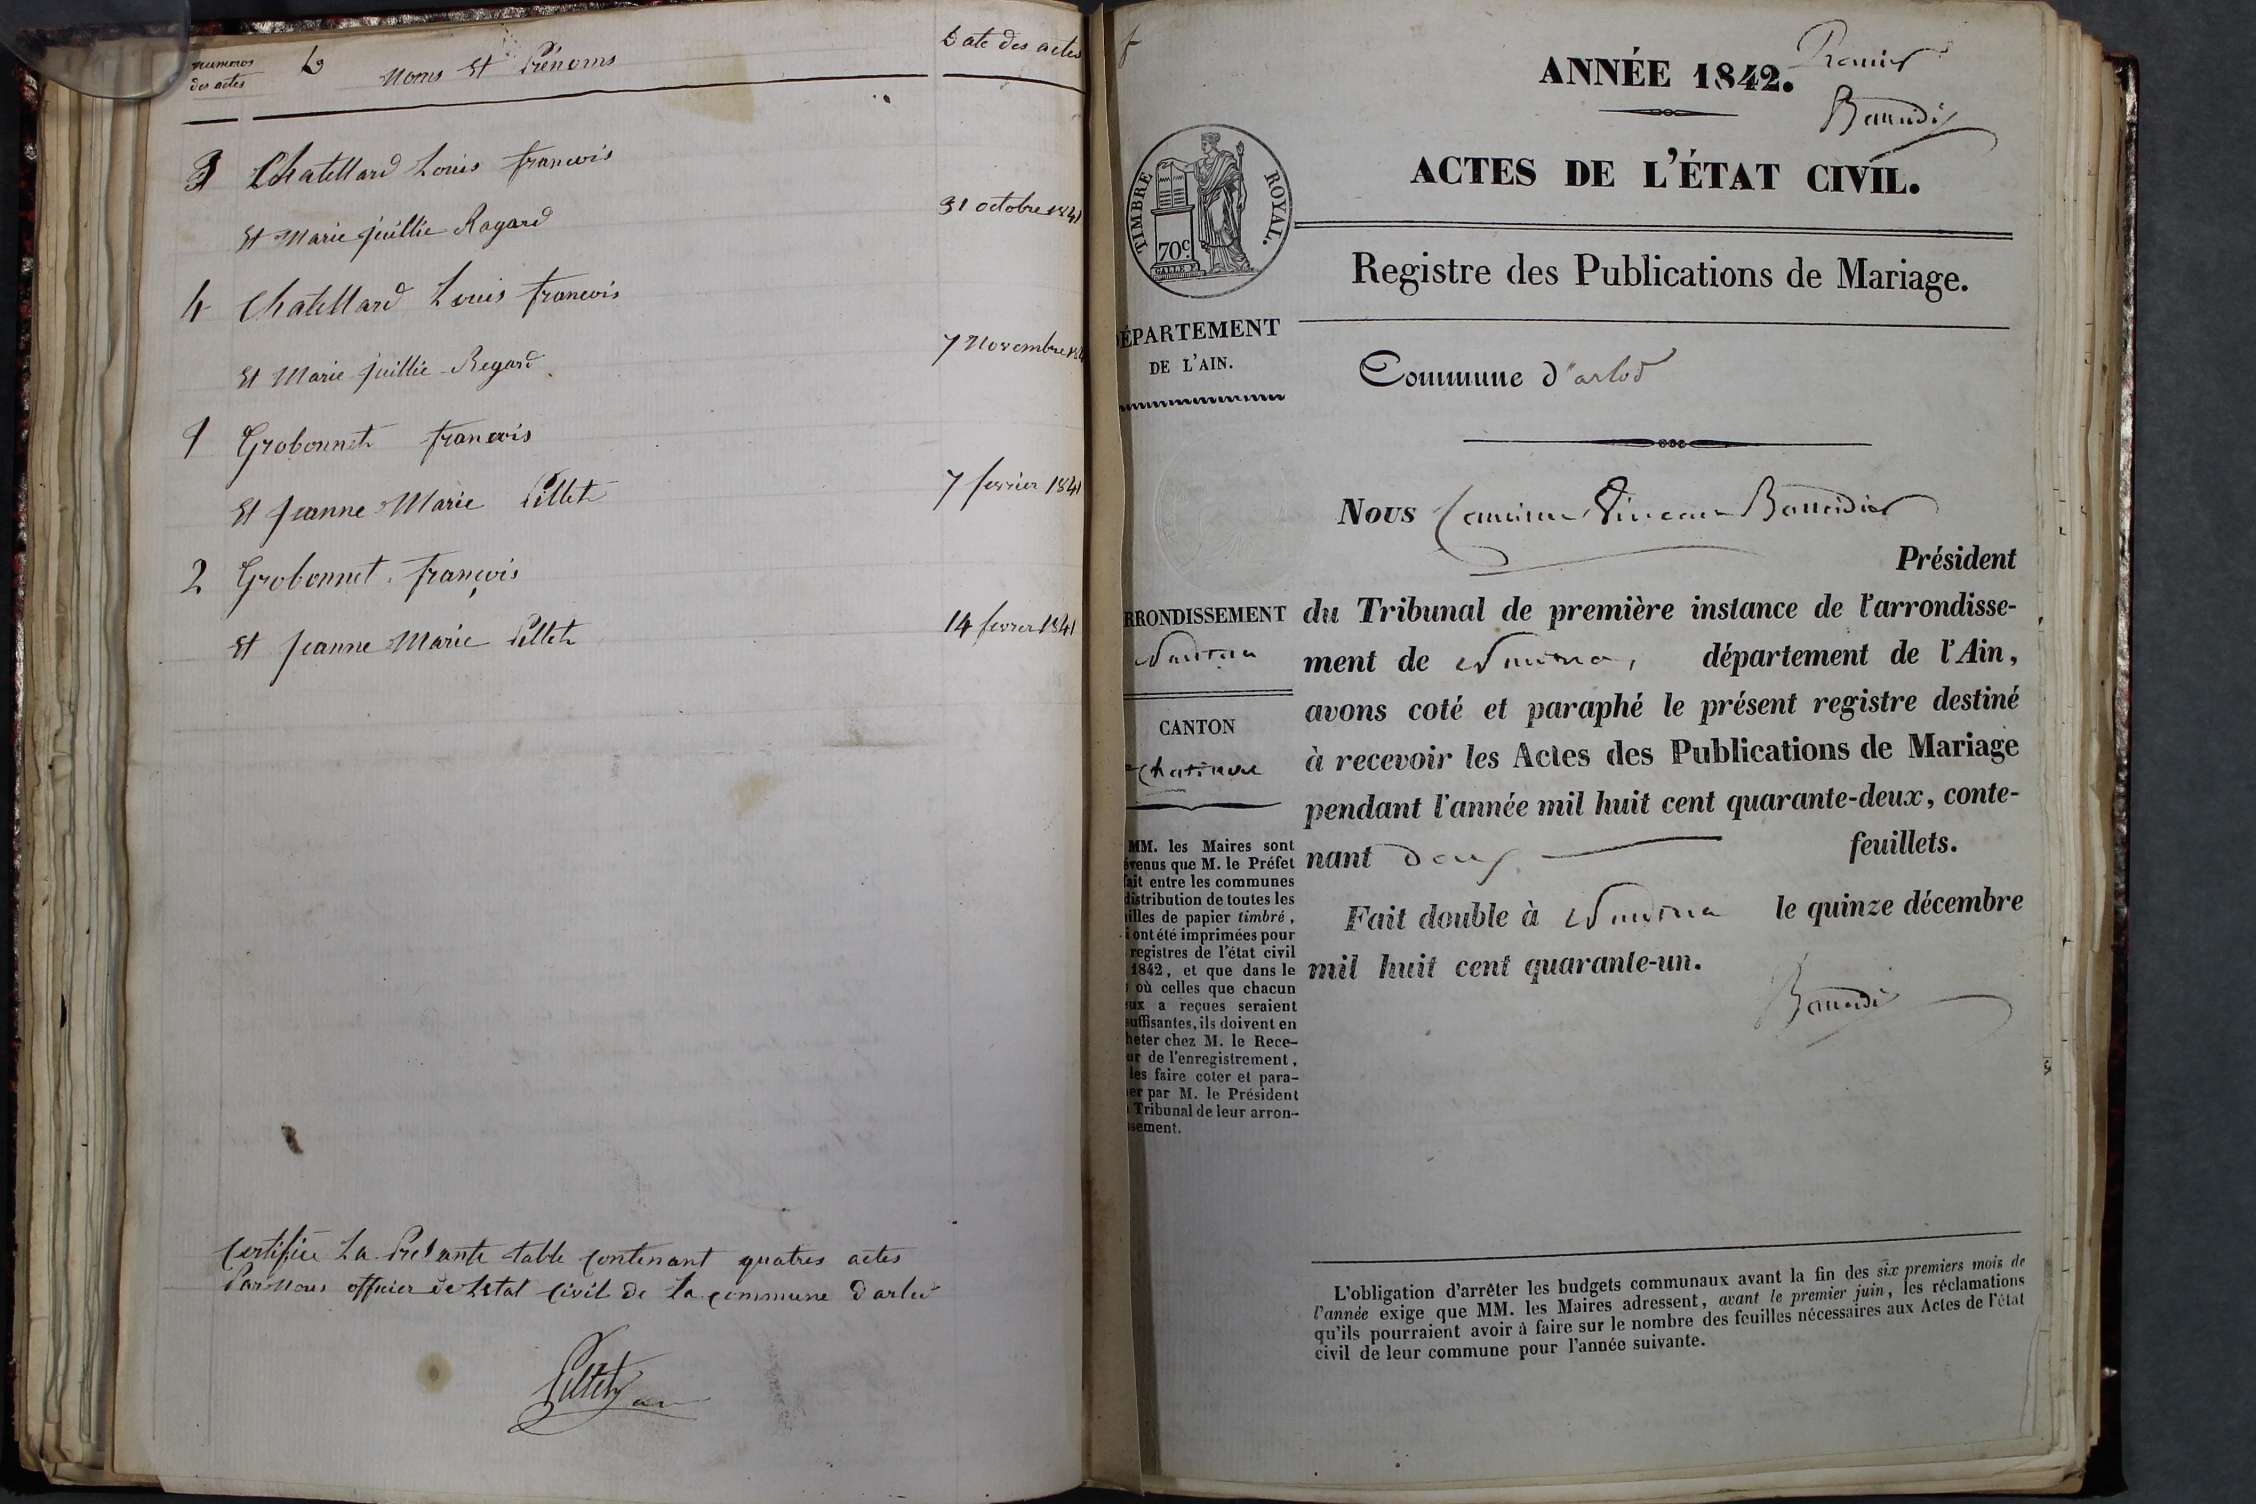 numeros
des actes
Noms Et Prénoms
Date des actes
3 Chatellard Louis francois
Et Marie juillie Ragard
31 octobre 1841
4 Chatellard Louis francois
Et Marie juillie Regard
7 Novembre
1 Grobonnet francois
Et Jeanne Marie Pillet
7 fevrier 1841
2 Grobonnet françois
Et Jeanne Marie Pillet
14 fevrer 1841
Certifiée La Presante table Contenant quatres actes
Par Nous officier de Létat Civil de La Commune darlod
Pillet
Premier
ANNÉE 1842.
Baudi
ACTES DE L'ÉTAT CIVIL.
TIMBRE ROYAL.
70c.
Registre des Publications de Mariage.
DÉPARTEMENT
DE L'AIN.
Commune d'arlod
Nous
Président
ARRONDISSEMENT
Nantua
CANTON
Chatillon
du Tribunal de première instance de l'arrondisse-
ment de Nantua, département de l'Ain,
avons coté et paraphé le présent registre destiné
à recevoir les Actes des Publications de Mariage
pendant l'année mil huit cent quarante-deux, conte-
nant deux feuillets.
Fait double à Nantua le quinze décembre
mil huit cent quarante-un.
MM. les Maires sont
évenus que M. le Préfet
fait entre les communes
distribution de toutes les
illes de papier timbré,
i ont été imprimées pour
registres de l'état civil
1842, et que dans le
où celles que chacun
eux a reçues seraient
suffisantes, ils doivent en
heter chez M. le Rece-
ur de l'enregistrement,
les faire coter et para-
er par M. le Président
Tribunal de leur arron-
ssement.
L'obligation d'arrêter les budgets communaux avant la fin des six premiers mois de
l'année exige que MM. les Maires adressent, avant le premier juin, les réclamations
qu'ils pourraient avoir à faire sur le nombre des feuilles nécessaires aux Actes de l'état
civil de leur commune pour l'année suivante.